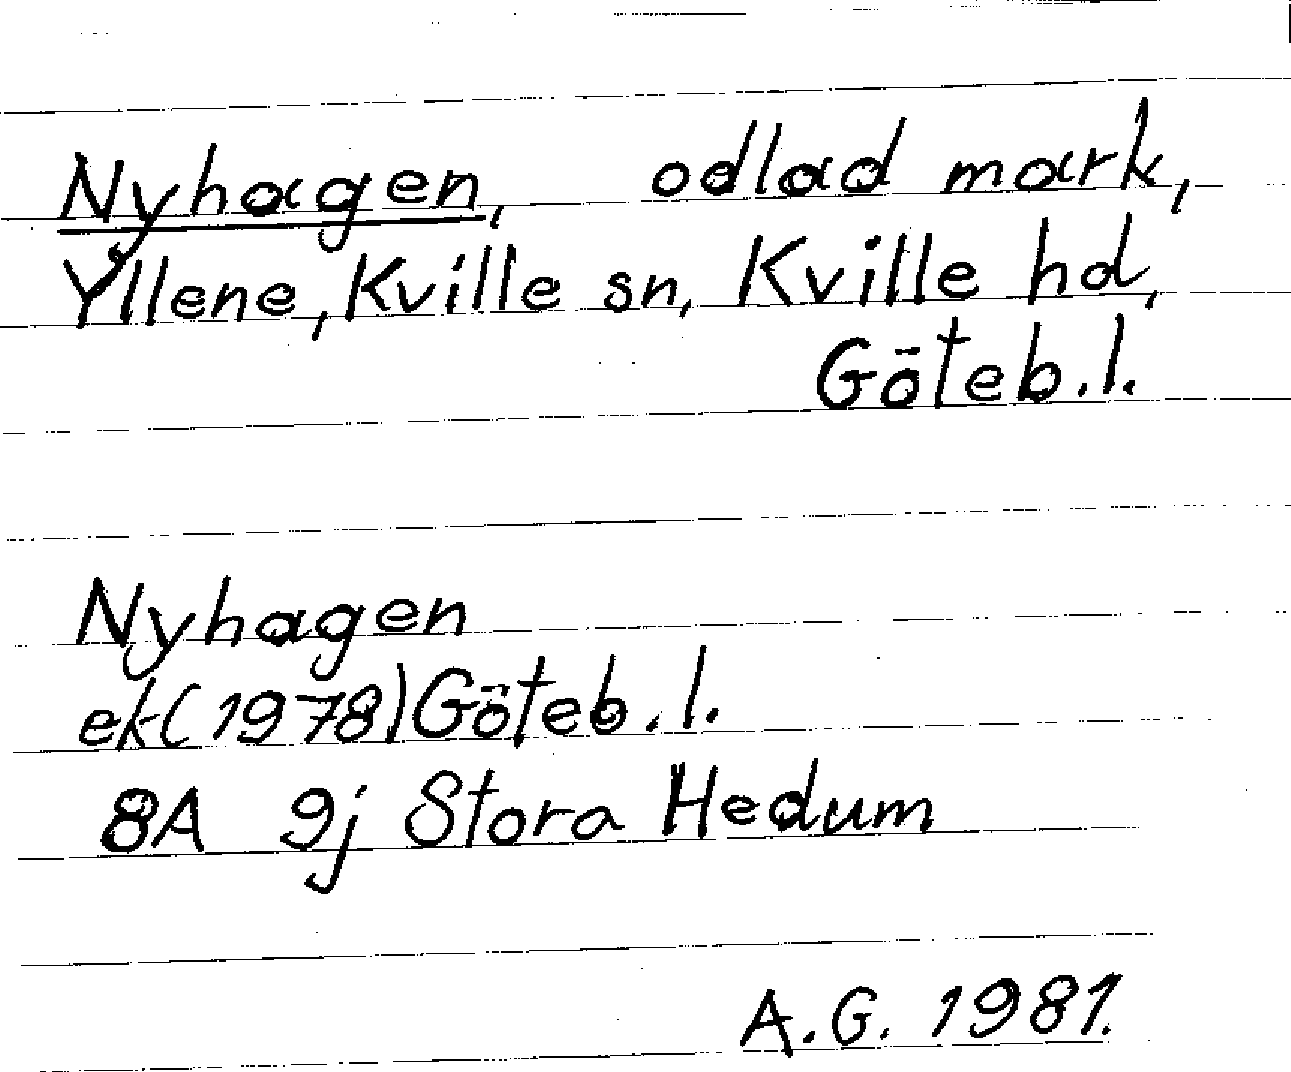 Nyhagen, odlad mark,
Yllene, Kville sn, Kville hd,
Göteb.l.
Nyhagen
ek(1978)Göteb.l.
8A 9j Stora Hedum
A.G. 1981.